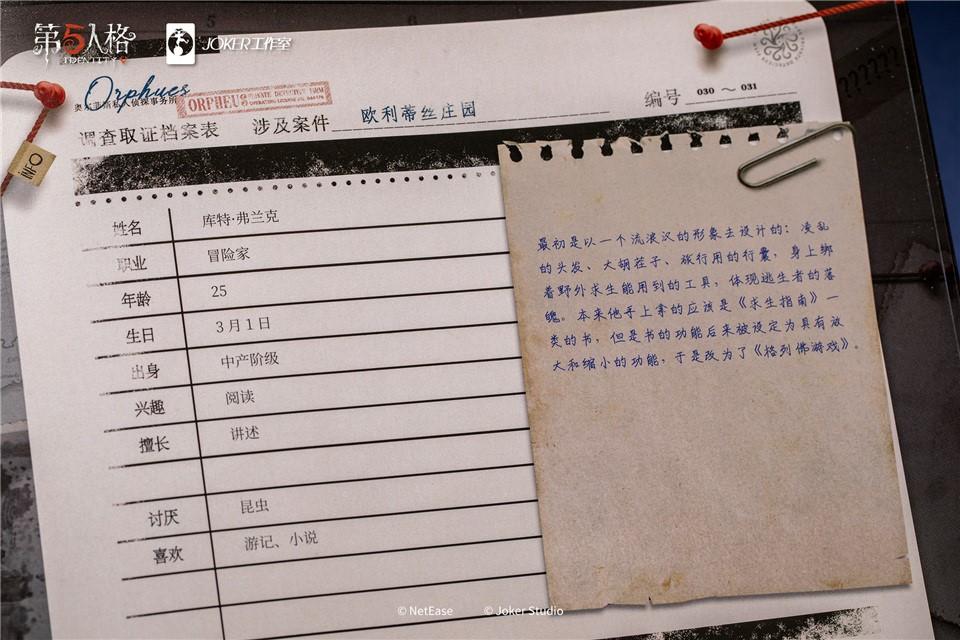 第5人格
IDENTITY
JOKER工作室
Orphues
奥尔菲斯私人侦探事务所
ORPHEUS PRIVATE DETECTIVE FIRM
调查取证档案表 涉及案件 欧利蒂丝庄园 编号 030 ～ 031
INFO
姓名 库特·弗兰克
职业 冒险家
年龄 25
生日 3月1日
出身 中产阶级
兴趣 阅读
擅长 讲述
讨厌 昆虫
喜欢 游记、小说
最初是以一个流浪汉的形象去设计的：凌乱
的头发、大胡茬子、旅行用的行囊，身上绑
着野外求生能用到的工具，体现逃生者的落
魄。本来他手上拿的应该是《求生指南》一
类的书，但是书的功能后来被设定为具有放
大和缩小的功能，于是改为了《格列佛游戏》。
??????
© NetEase © Joker Studio